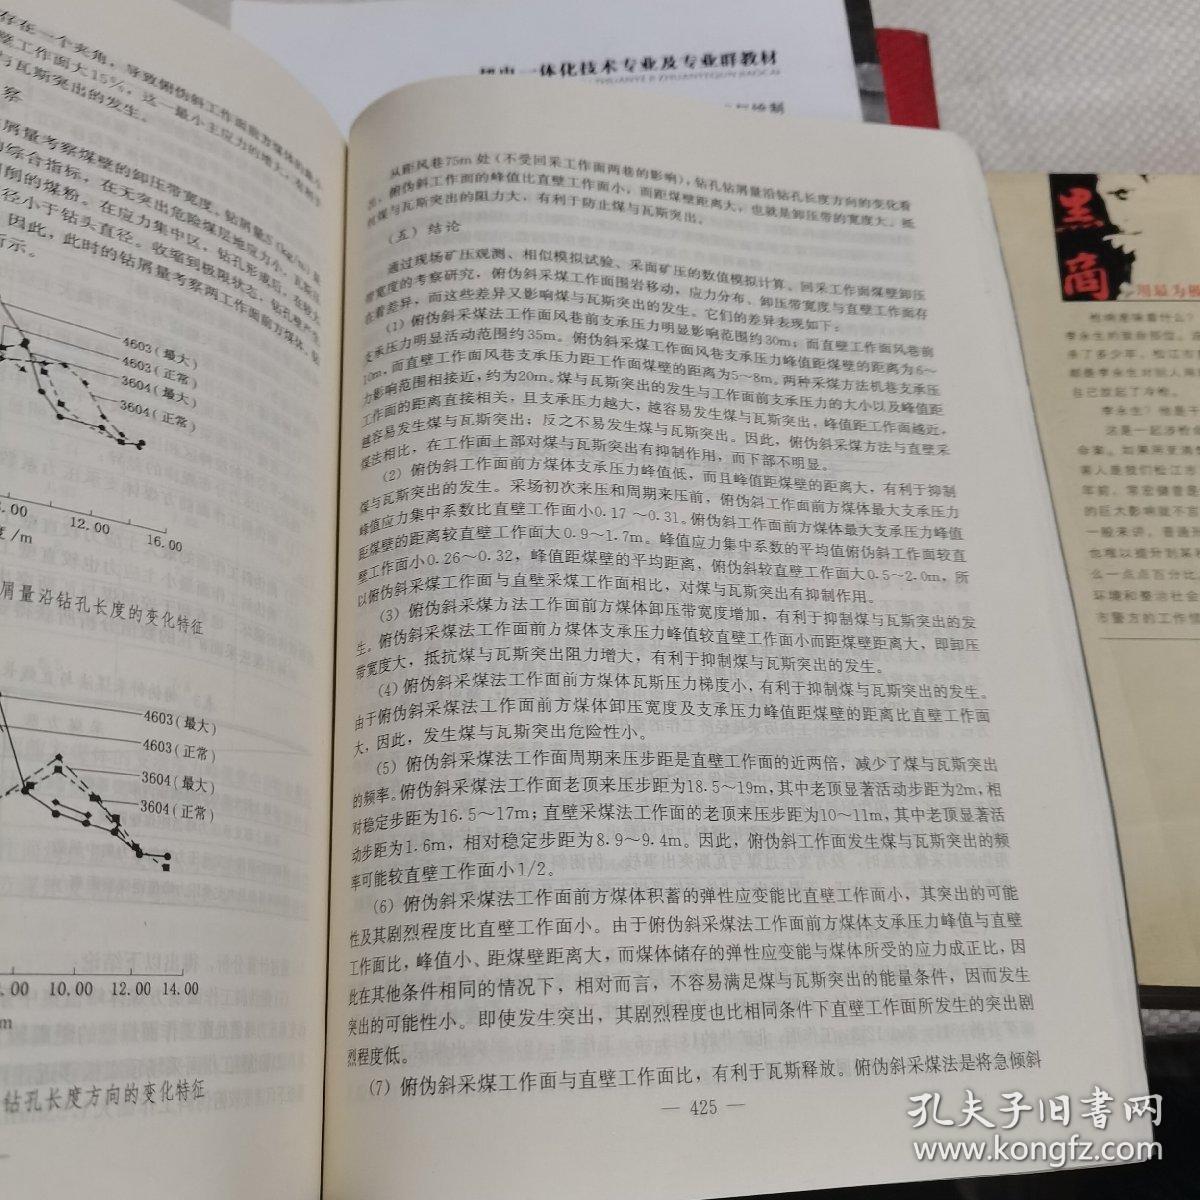 存在一个夹角，导致俯伪斜工作面前方煤体的最小
壁工作面大15%，这一最小主应力的增大，有利于
与瓦斯突出的发生。
察
屑量考察煤壁的卸压带宽度，钻屑量S
综合指标，在无突出危险煤层地应力小，瓦斯压
倒的煤粉。在应力集中区，钻孔形成后，在较大
径小于钻头直径。收缩到极限状态，钻孔
因此，此时的钻屑量考察两工作面前方煤体
所示。
4603（最大）
4603（正常）
3604（最大）
3604（正常）
12.00
16.00
度/m
屑量沿钻孔长度的变化特征
4603（最大）
4603（正常）
3604（最大）
3604（正常）
10.00
12.00
14.00
m
钻孔长度方向的变化特征
一体化技术专业及专业群教材
从距风巷75m处（不受回采工作面两巷的影响），钻孔钻屑量沿钻孔长度方向的变化看
出，俯伪斜工作面的峰值比直壁工作面小，而距煤壁距离大，也就是卸压带的宽度大，抵
抗煤与瓦斯突出的阻力大，有利于防止煤与瓦斯突出。
（五）结论
通过现场矿压观测、相似模拟试验、采面矿压的数值模拟计算、回采工作面煤壁卸压
带宽度的考察研究，俯伪斜采煤工作面围岩移动，应力分布、卸压带宽度与直壁工作面存
在着差异，而这些差异又影响煤与瓦斯突出的发生。它们的差异表现如下：
（1）俯伪斜采煤法工作面风巷前支承压力明显影响范围约30m；而直壁工作面风巷前
支承压力明显活动范围约35m。俯伪斜采煤工作面风巷支承压力峰值距煤壁的距离为6～
10m，而直壁工作面风巷支承压力距工作面煤壁的距离为5～8m。两种采煤方法机巷支承压
力影响范围相接近，约为20m。煤与瓦斯突出的发生与工作面前支承压力的大小以及峰值距
工作面的距离直接相关，且支承压力越大，越容易发生煤与瓦斯突出，峰值距工作面越近，
越容易发生煤与瓦斯突出；反之不易发生煤与瓦斯突出。因此，俯伪斜采煤方法与直壁采
煤法相比，在工作面上部对煤与瓦斯突出有抑制作用，而下部不明显。
（2）俯伪斜工作面前方煤体支承压力峰值低，而且峰值距煤壁的距离大，有利于抑制
煤与瓦斯突出的发生。采场初次来压和周期来压前，俯伪斜工作面前方煤体最大支承压力
峰值应力集中系数比直壁工作面小0.17～0.31。俯伪斜工作面前方煤体最大支承压力峰值
距煤壁的距离较直壁工作面大0.9～1.7m。峰值应力集中系数的平均值俯伪斜工作面较直
壁工作面小0.26～0.32，峰值距煤壁的平均距离，俯伪斜较直壁工作面大0.5～2.0m，所
以俯伪斜采煤工作面与直壁采煤工作面相比，对煤与瓦斯突出有抑制作用。
（3）俯伪斜采煤方法工作面前方煤体卸压带宽度增加，有利于抑制煤与瓦斯突出的发
生。俯伪斜采煤法工作面前方煤体支承压力峰值较直壁工作面小而距煤壁距离大，即卸压
带宽度大，抵抗煤与瓦斯突出阻力增大，有利于抑制煤与瓦斯突出的发生。
（4）俯伪斜采煤法工作面前方煤体瓦斯压力梯度小，有利于抑制煤与瓦斯突出的发生。
由于俯伪斜采煤法工作面前方煤体卸压宽度及支承压力峰值距煤壁的距离比直壁工作面
大，因此，发生煤与瓦斯突出危险性小。
（5）俯伪斜采煤法工作面周期来压步距是直壁工作面的近两倍，减少了煤与瓦斯突出
的频率。俯伪斜采煤法工作面老顶来压步距为18.5～19m，其中老顶显著活动步距为2m，相
对稳定步距为16.5～17m；直壁采煤法工作面的老顶来压步距为10～11m，其中老顶显著活
动步距为1.6m，相对稳定步距为8.9～9.4m。因此，俯伪斜工作面发生煤与瓦斯突出的频
率可能较直壁工作面小1/2。
（6）俯伪斜采煤法工作面前方煤体积蓄的弹性应变能比直壁工作面小，其突出的可能
性及其剧烈程度比直壁工作面小。由于俯伪斜采煤法工作面前方煤体支承压力峰值与直壁
工作面比，峰值小、距煤壁距离大，而煤体储存的弹性应变能与煤体所受的应力成正比，因
此在其他条件相同的情况下，相对而言，不容易满足煤与瓦斯突出的能量条件，因而发生
突出的可能性小。即使发生突出，其剧烈程度也比相同条件下直壁工作面所发生的突出剧
烈程度低。
（7）俯伪斜采煤工作面与直壁工作面比，有利于瓦斯释放。俯伪斜采煤法是将急倾斜
— 425 —
黑商
用最为
枪响意味着什么？
李永生的致命部位。
来了多少年，松江市
李永生？他是干
这是一起涉枪
命案。如果用亚
害人是我们松江市
年前，常宏健曾是
的巨大影响就不言
一般来讲，普通
也难以提升到某
么一点点百分比，
环境和整治社会
市警方的工作
孔夫子旧书网
www.kongfz.com